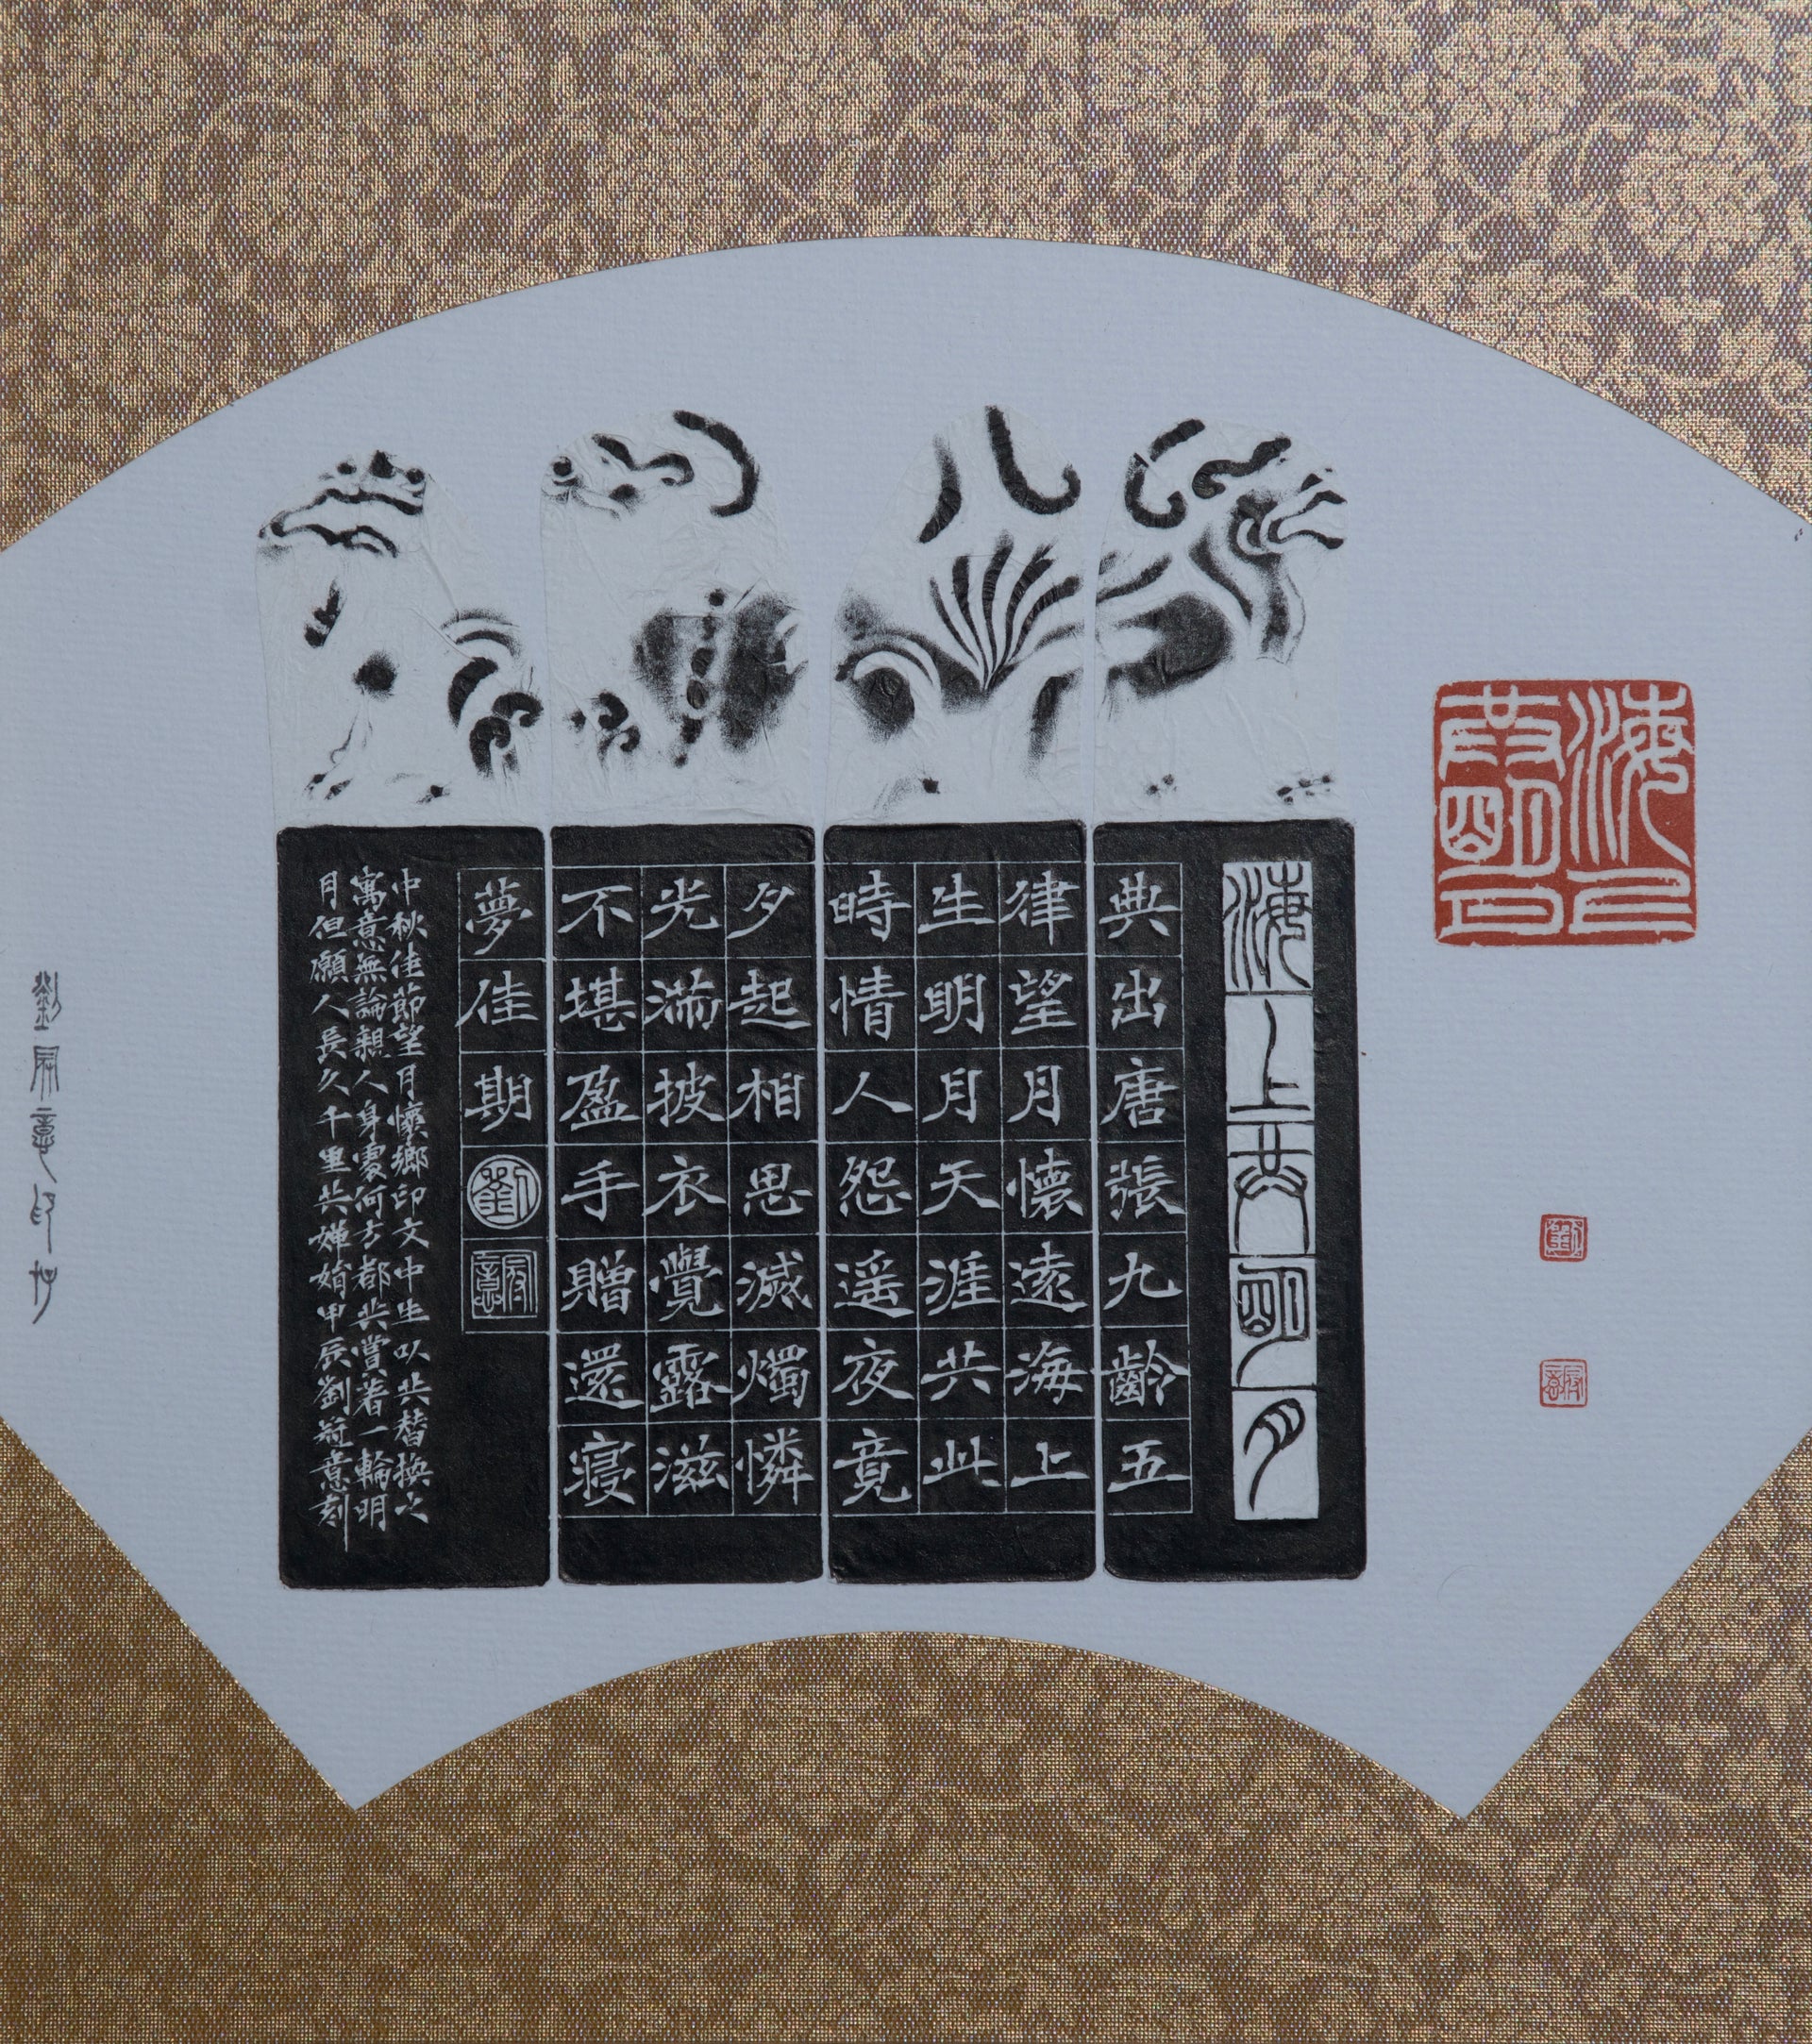 海上共明月
劉
冠意
海上共明月
典出唐張九齡五
律望月懷遠海上
生明月天涯共此
時情人怨遥夜竟
夕起相思滅燭憐
光滿披衣覺露滋
不堪盈手贈還寢
夢佳期
劉
冠意
中秋佳節望月懷鄉印文中生以共替換之
寓意無論親人身處何方都共賞着一輪明
月但願人長久千里共嬋娟甲辰劉冠意刻
劉冠意印